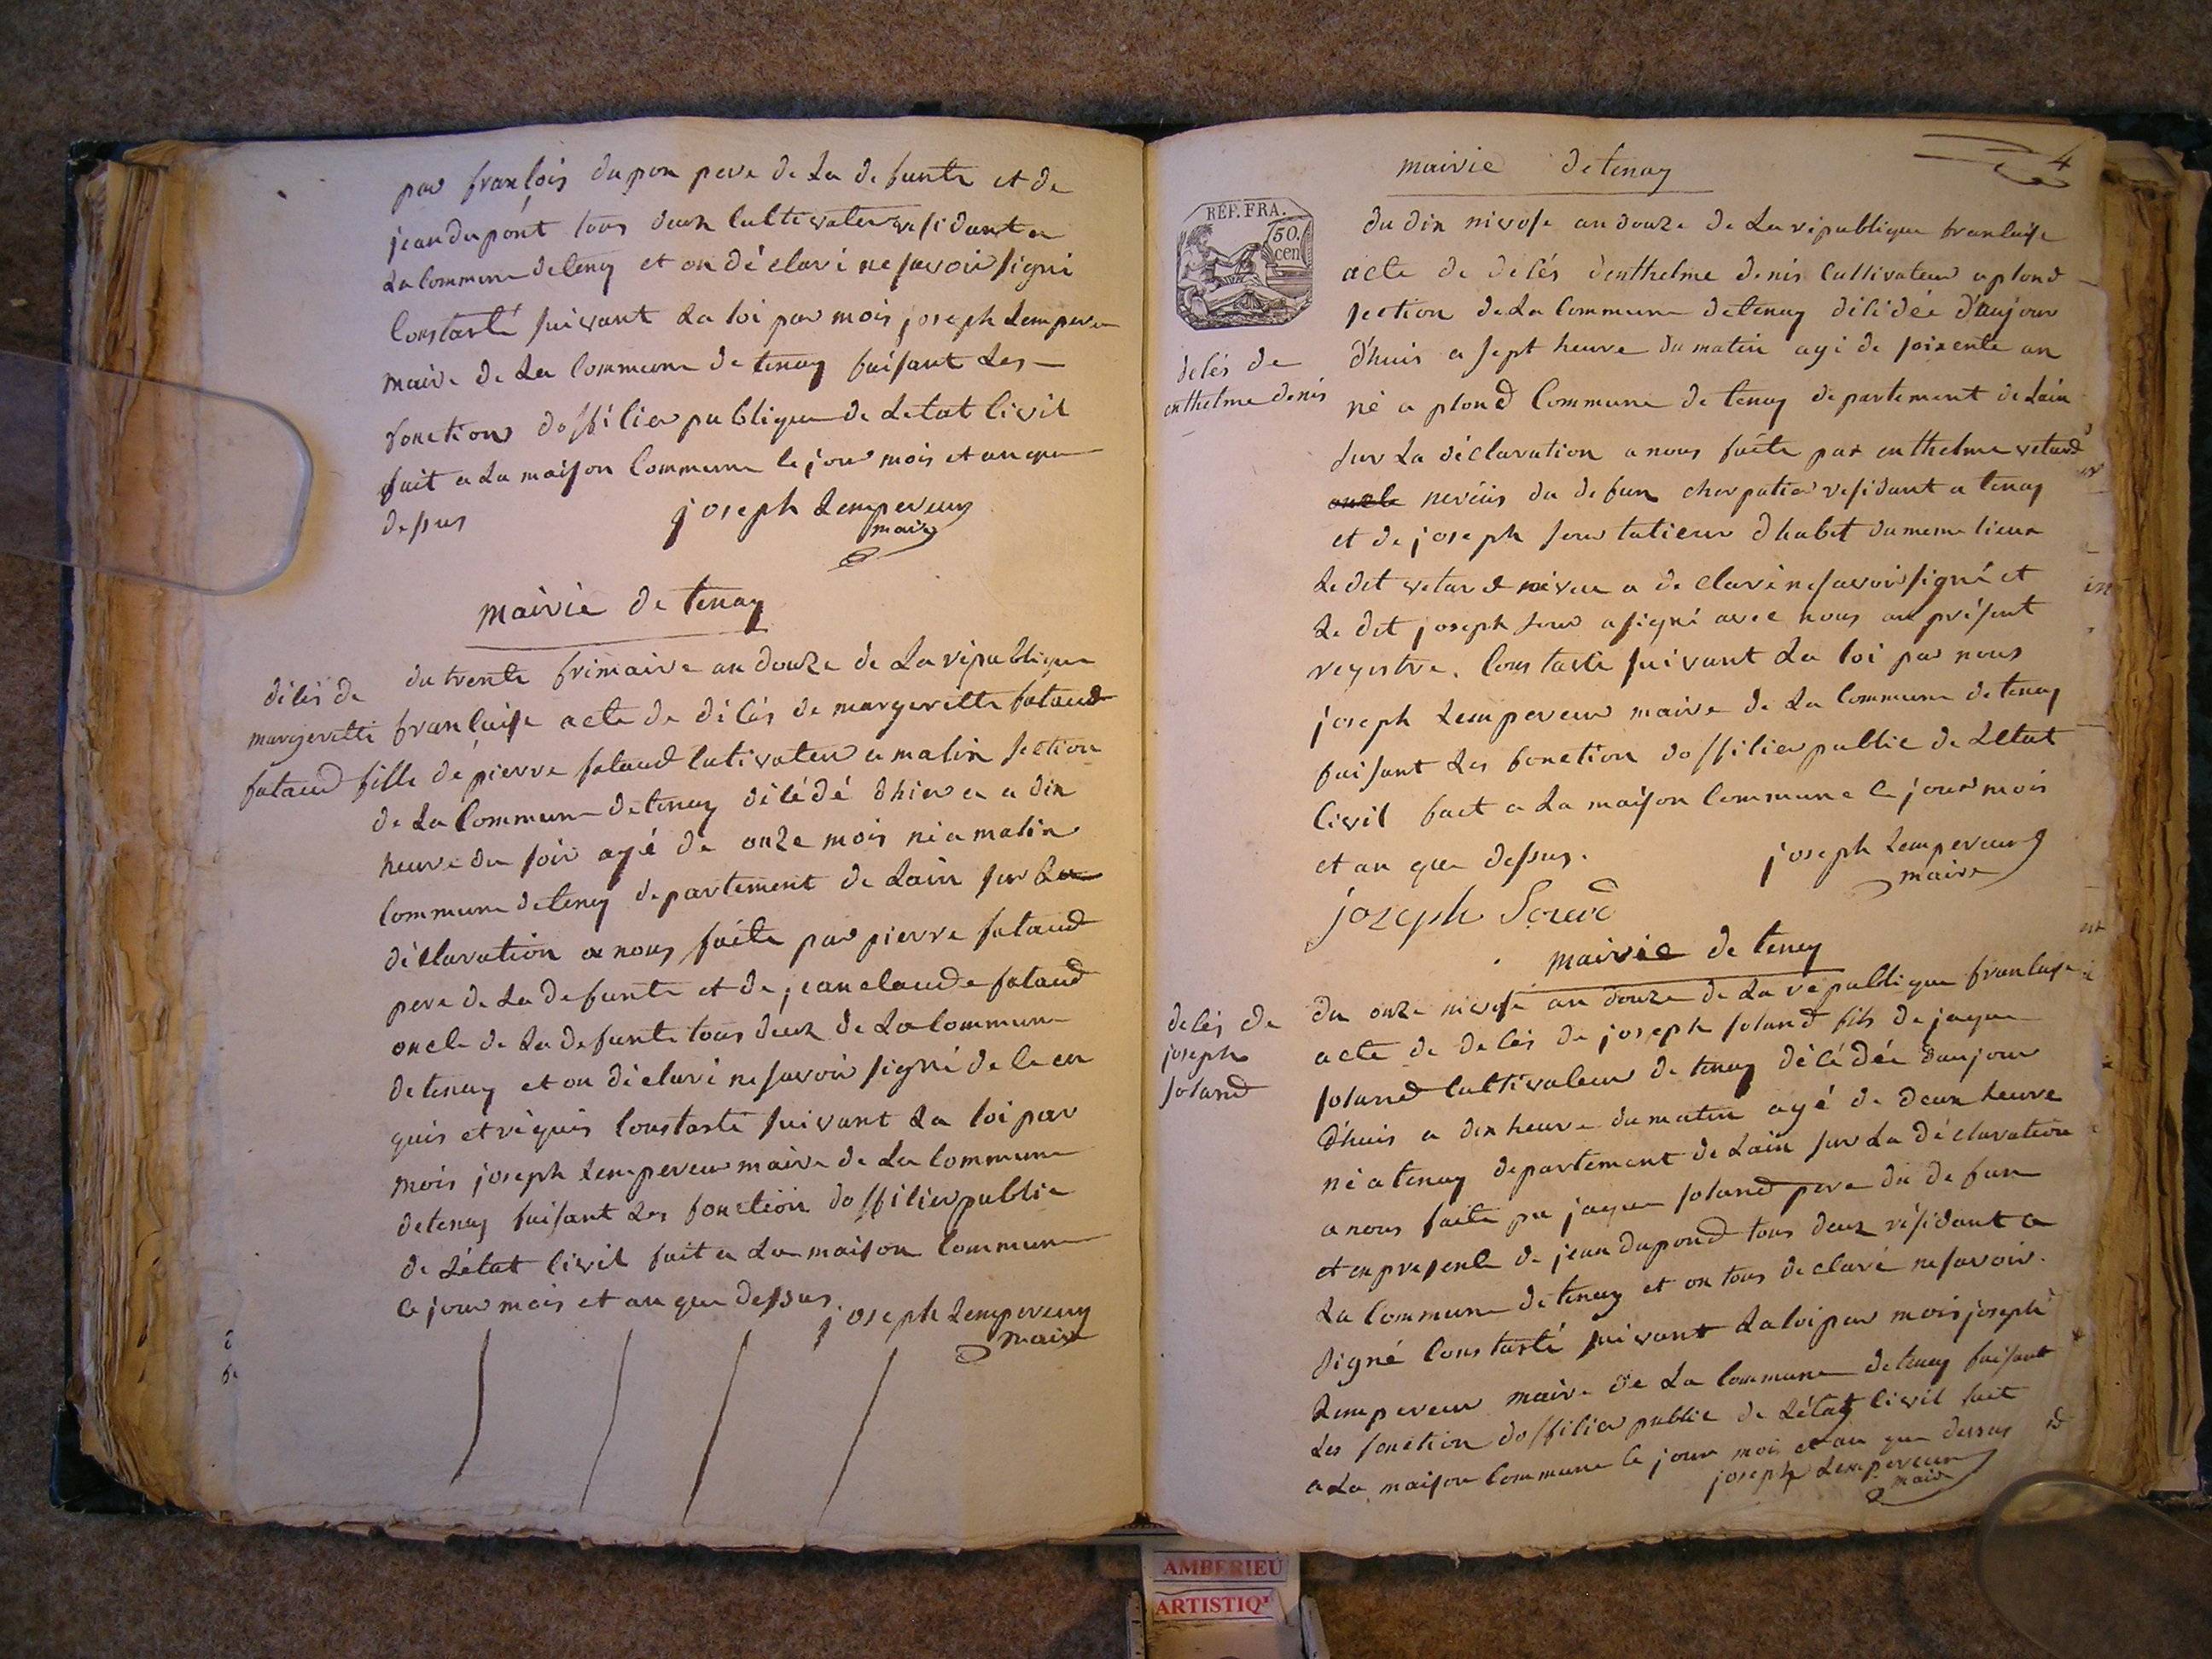 par francois dupon pere de La defunte et de
jean dupont tous deux cultivateur residant a
La commune de tenay et on déclaré ne savoir signé
Constasté suivant La loi par mois joseph Lempereur
maire de La Commune de tenay faisant Les
fonction dofficier publique de Letat Civil
fait a La maison Commune le jour mois et an que
dessus
joseph Lempereur
maire
Mairie de tenay
décés de
margeritte
fataud
du trente frimaire an douze de La république
francaise acte de décés de margeritte fataud
fille de pierre fataud cutivateur a malin section
de La Commune de tenay décédé dhier a a dix
heure du soir agé de onze mois né a malin
Commune de tenay departement de Lain sur La
déclaration a nous faite par pierre fataud
pere de La defunte et de jean claude fataud
oncle de La defunte tous deux de La Commune
de tenay et on déclaré ne savoir signé de ce en
quis et réquis Constasté suivant La loi par
mois joseph Lempereur maire de La Commune
de tenay faisant Les fonction dofficier public
de Létat Civil fait a La maison Commune
le jour mois et an que dessus
joseph Lempereur
maire
4
mairie de tenay
REP. FRA.
50.
cen
decés de
enthelme denis
du dix nivose an douze de La république francaise
acte de decés denthelme denis Cultivateur a plond
section de La Commune de tenay décédée d'aujour
d'huis a sept heure du matin agé de soixente an
né a plond Commune de tenay departement de Lain
sur La déclaration a nous faite par enthelme vetard
oncle neveüs du defun charpatier residant a tenay
et de joseph tatieur dhabit du meme lieux
Le dit vetard neveu a declaré ne savoir signé et
Le dit joseph a signé avec nous au présent
regestre. Constasté suivant La loi par nous
joseph Lempereur maire de La Commune de tenay
faisant Les fonction dofficier public de Letat
Civil fait a La maison Commune le jour mois
et an que dessus.
joseph Lempereur
maire
joseph
mairie de tenay
decés de
joseph
foland
du onze nivose an douze de La république francaise
acte de decés de joseph foland fils de jaque
foland Cultivateur de tenay décédée daujour
d'huis a dix heure du matin agé de deux heure
né a tenay departement de Lain sur La déclaration
a nous faite par jaque foland pere du defun
et en presence de jean dupond tous deux résidant a
La Commune de tenay et on tous declaré ne savoir
signé Constasté suivant La loi par mois joseph
Lempereur maire de La Commune de tenay faisant
Les fonction dofficier public de Létat Civil fait
a La maison Commune le jour mois et an que dessus
joseph Lempereur
maire
AMBERIEU
ARTISTIQ